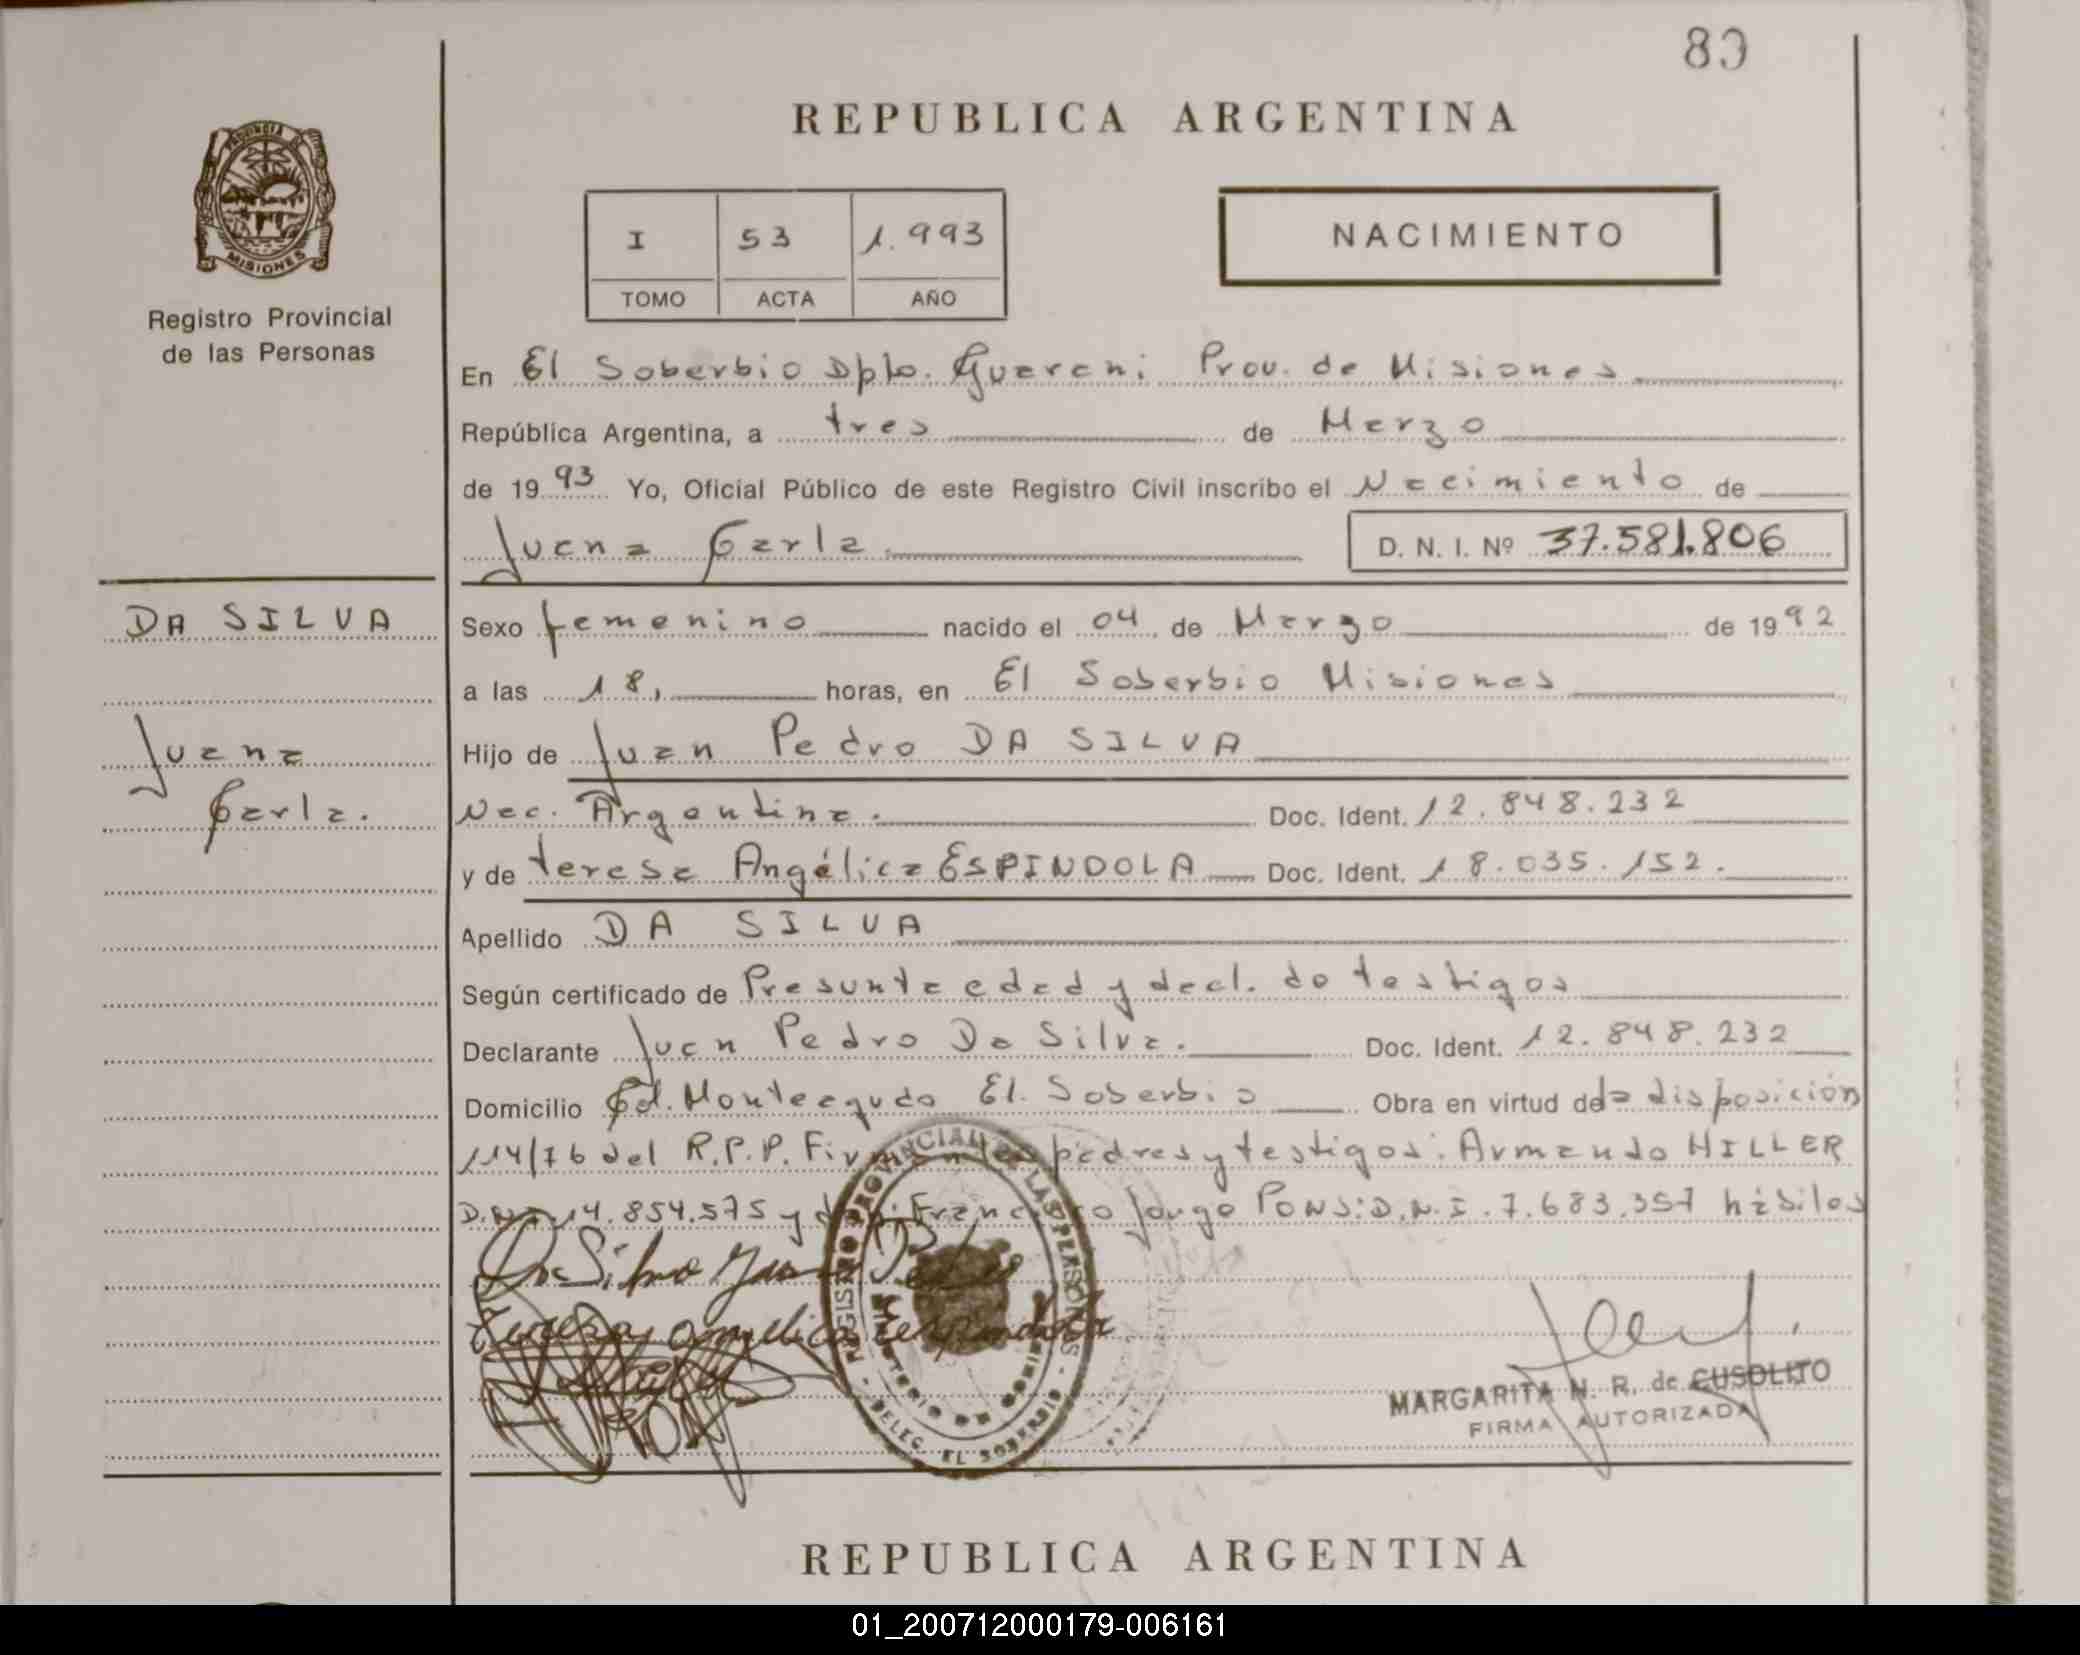 89
REPUBLICA ARGENTINA
PROVINCIA DE
MISIONES
Registro Provincial
de las Personas
I 53 1.993
TOMO ACTA AÑO
NACIMIENTO
En El Soberbio Dpto. Guarani Prov. de Misiones
República Argentina, a tres de Marzo
de 1993 Yo, Oficial Público de este Registro Civil inscribo el Nacimiento de
Juana Carla
D. N. I. Nº 37.581.806
DA SILVA
Juana
Carla.
Sexo femenino nacido el 04 de Marzo de 1992
a las 18, horas, en El Soberbio Misiones
Hijo de Juan Pedro DA SILVA
Nac. Argentina. Doc. Ident. 12.848.232
y de teresa Angélica ESPINDOLA Doc. Ident. 18.035.152.
Apellido DA SILVA
Según certificado de Presunta edad y decl. de testigos
Declarante Juan Pedro Da Silva. Doc. Ident. 12.848.232
Domicilio Cd. Monteagudo El. Soberbio Obra en virtud de la disposición
114/76 del R.P.P. padres y testigos: Armando HILLER
D.N.I. 14.854.575 y Jorge PONS: D.N.I. 7.683.357 hábiles
Da Silva Juan Pedro
Teresa angelica espindola
REGISTRO PROVINCIAL DE LAS PERSONAS
DELEG. EL SOBERBIO
MARGARITA N. R. de CUSOLITO
FIRMA AUTORIZADA
REPUBLICA ARGENTINA
01_200712000179-006161